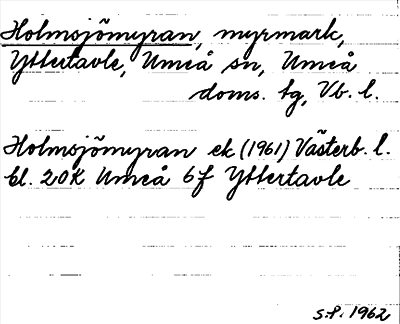 Holmsjömyran, myrmark,
Yttertavle, Umeå sn, Umeå
doms. tg, Vb. l.
Holmsjömyran ek (1961) Västerb. l.
bl. 20K Umeå 6f Yttertavle
S.P. 1962